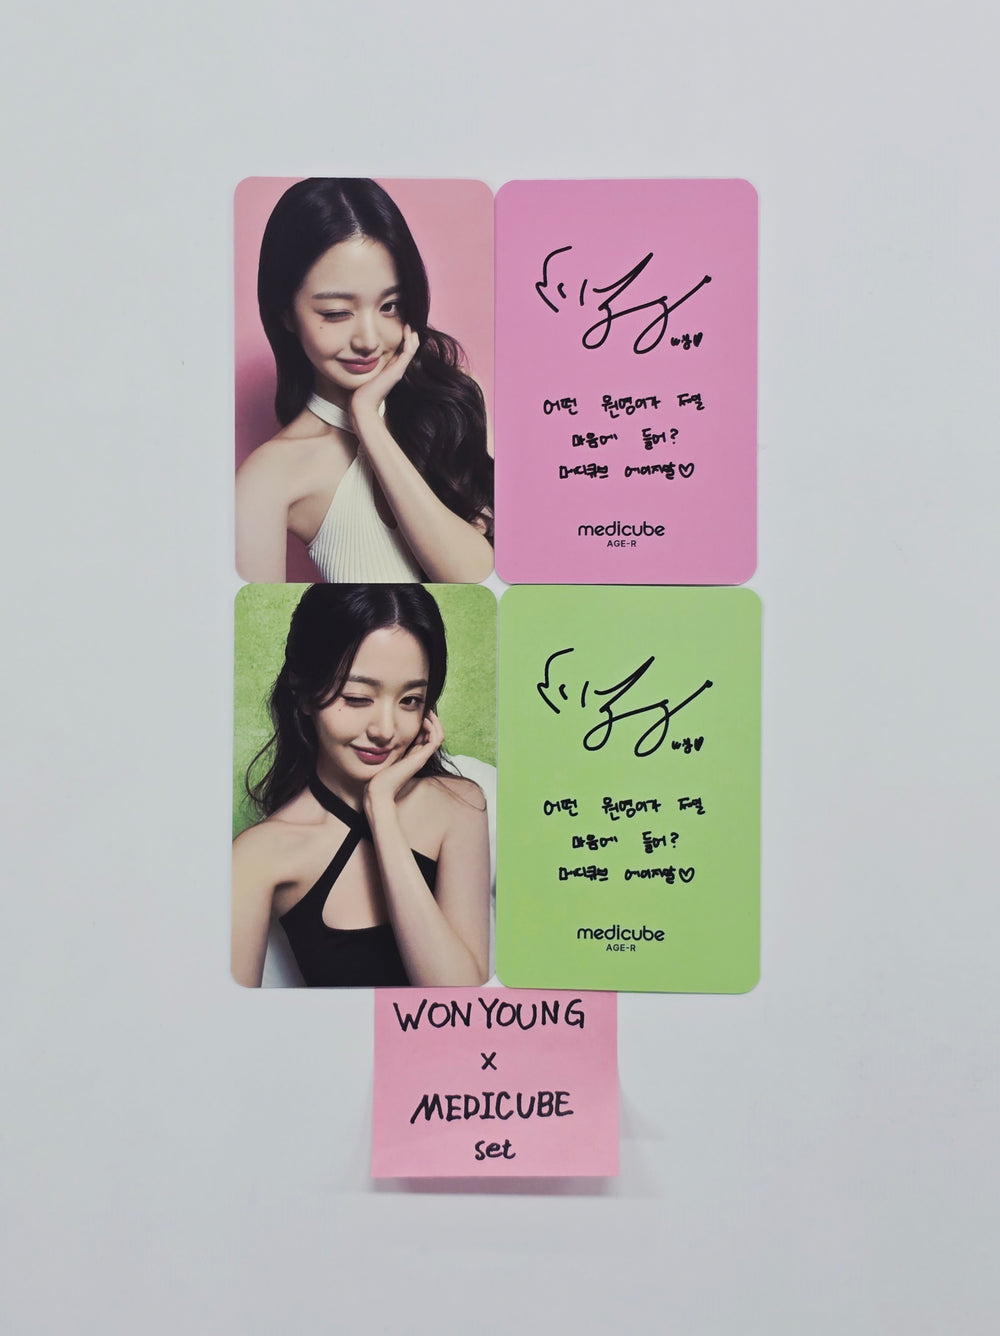 w영♥
어떤 원영이가 제일
마음에 들어?
메디큐브 에이지알♡
medicube
AGE-R
w영♥
어떤 원영이가 제일
마음에 들어?
메디큐브 에이지알♡
medicube
AGE-R
WONYOUNG
x
MEDICUBE
set